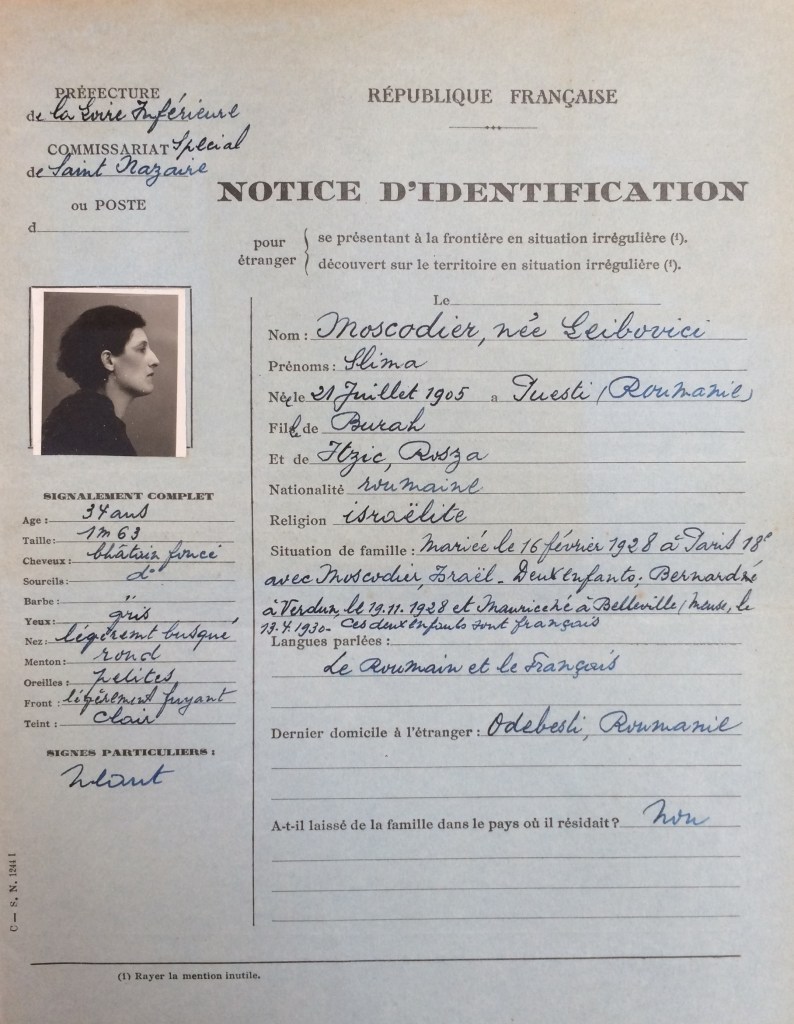 PRÉFECTURE
de la Loire Inférieure
COMMISSARIAT Spécial
de Saint Nazaire
ou POSTE
d
RÉPUBLIQUE FRANÇAISE
NOTICE D'IDENTIFICATION
pour étranger
se présentant à la frontière en situation irrégulière (¹).
découvert sur le territoire en situation irrégulière (¹).
Le
Nom : Moscodier, née Leibovici
Prénoms : Slima
Née le 21 Juillet 1905 a Puesti (Roumanie)
Fille de Burah
Et de Itzic, Rosza
Nationalité roumaine
Religion israëlite
Situation de famille : Mariée le 16 février 1928 à Paris 18e
avec Moscodier, Israël - Deux enfants; Bernard né
à Verdun, le 19.11.1928 et Maurice né à Belleville, Meuse, le
13.4.1930 - Ces deux enfants sont français
Langues parlées :
Le Roumain et le Français
Dernier domicile à l'étranger : Odobesti, Roumanie
A-t-il laissé de la famille dans le pays où il résidait ? Non
SIGNALEMENT COMPLET
Age : 34 ans
Taille : 1m 63
Cheveux : châtain foncé
Sourcils : do
Barbe : "
Yeux : gris
Nez : légèremt busqué
Menton : rond
Oreilles : petites
Front : légèrement fuyant
Teint : clair
SIGNES PARTICULIERS :
Néant
C — S. N. 1244 I
(1) Rayer la mention inutile.